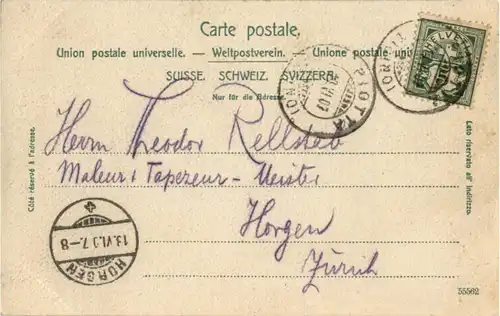 Carte postale.
Union postale universelle. — Weltpostverein. — Unione postale universale
SUISSE. SCHWEIZ. SVIZZERA.
Nur für die Adresse.
PIOTTA
HELVETIA
Côté réservé à l'adresse.
Lato riservato all' indirizzo.
Herrn Theodor Rellstab
Maler & Tapezier-Meister
Horgen
Zürich
HORGEN
13.VI.07.-8
55562